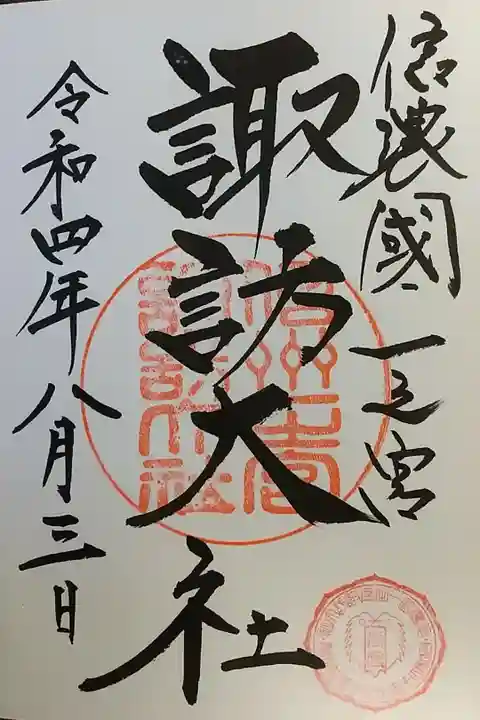 信濃國一之宮
諏訪大社
令和四年八月三日